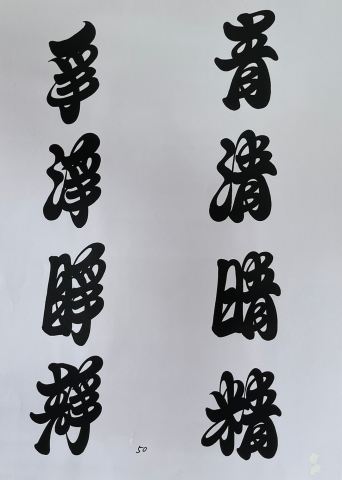 青清晴精
爭淨睜靜
50